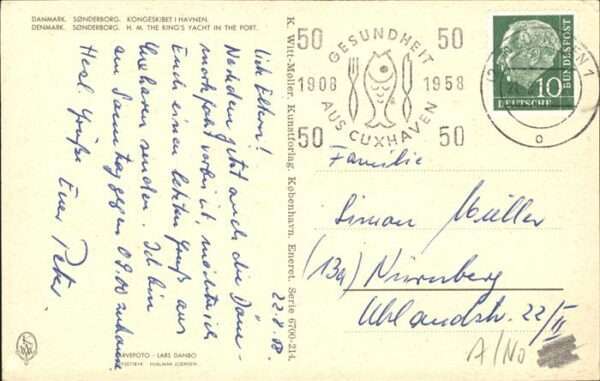 DANMARK. SØNDERBORG. KONGESKIBET I HAVNEN.
DENMARK. SØNDERBORG. H. M. THE KING'S YACHT IN THE PORT.
22.8.58
Liebe Eltern!
Nachdem jetzt auch die Däne-
markfahrt vorbei ist, möchte ich
Euch einen letzten Gruß aus
Cuxhaven senden. Ich bin
am Samstag gegen 09.00 zuhause
Herzl. Grüße Euer Peter
FARVEFOTO - LARS DANBO
K. Witt-Møller, Kunstforlag, København. Eneret. Serie 6700-214.
50 GESUNDHEIT 50
1908 1958
50 AUS CUXHAVEN 50
10
DEUTSCHE
BUNDESPOST
Familie
Simon Müller
(13a) Nürnberg
Uhlandstr. 22/II
A/No